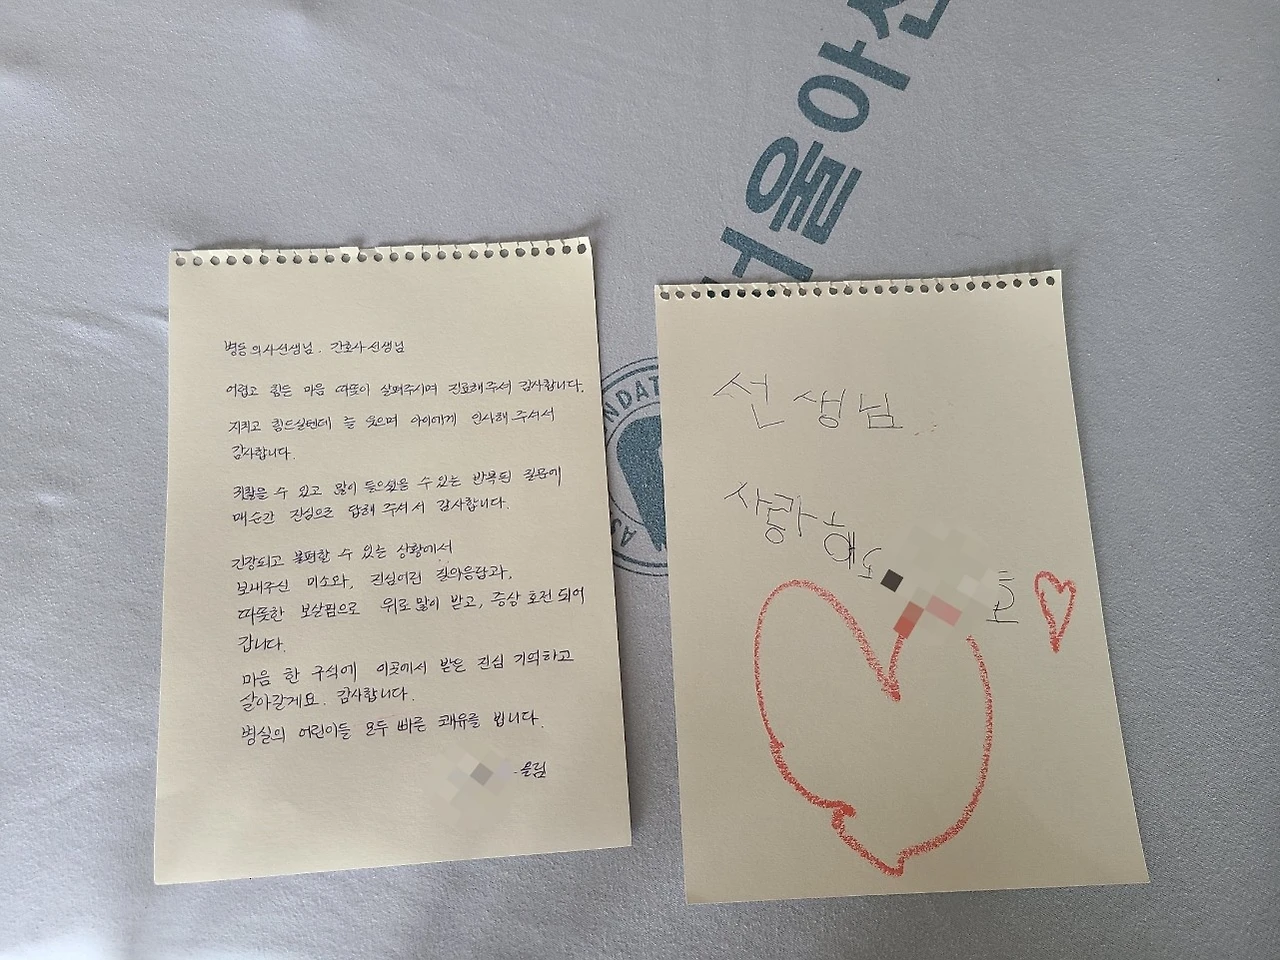 서울아산
NDAT
AS
병동 의사선생님. 간호사 선생님
어렵고 힘든 마음 따뜻이 살펴주시며 진료해주셔서 감사합니다.
지치고 힘드실텐데 늘 웃으며 아이에게 인사해 주셔서
감사합니다.
귀찮을 수 있고 많이 들으셨을 수 있는 반복된 질문에
매순간 진심으로 답해 주셔서 감사합니다.
긴장되고 불편할 수 있는 상황에서
보내주신 미소와, 진심어린 질의응답과,
따뜻한 보살핌으로 위로 많이 받고, 증상 호전 되어
갑니다.
마음 한 구석에 이곳에서 받은 진심 기억하고
살아갈게요. 감사합니다.
병실의 어린이들 모두 빠른 쾌유를 빕니다.
올림
선생님
사랑해요